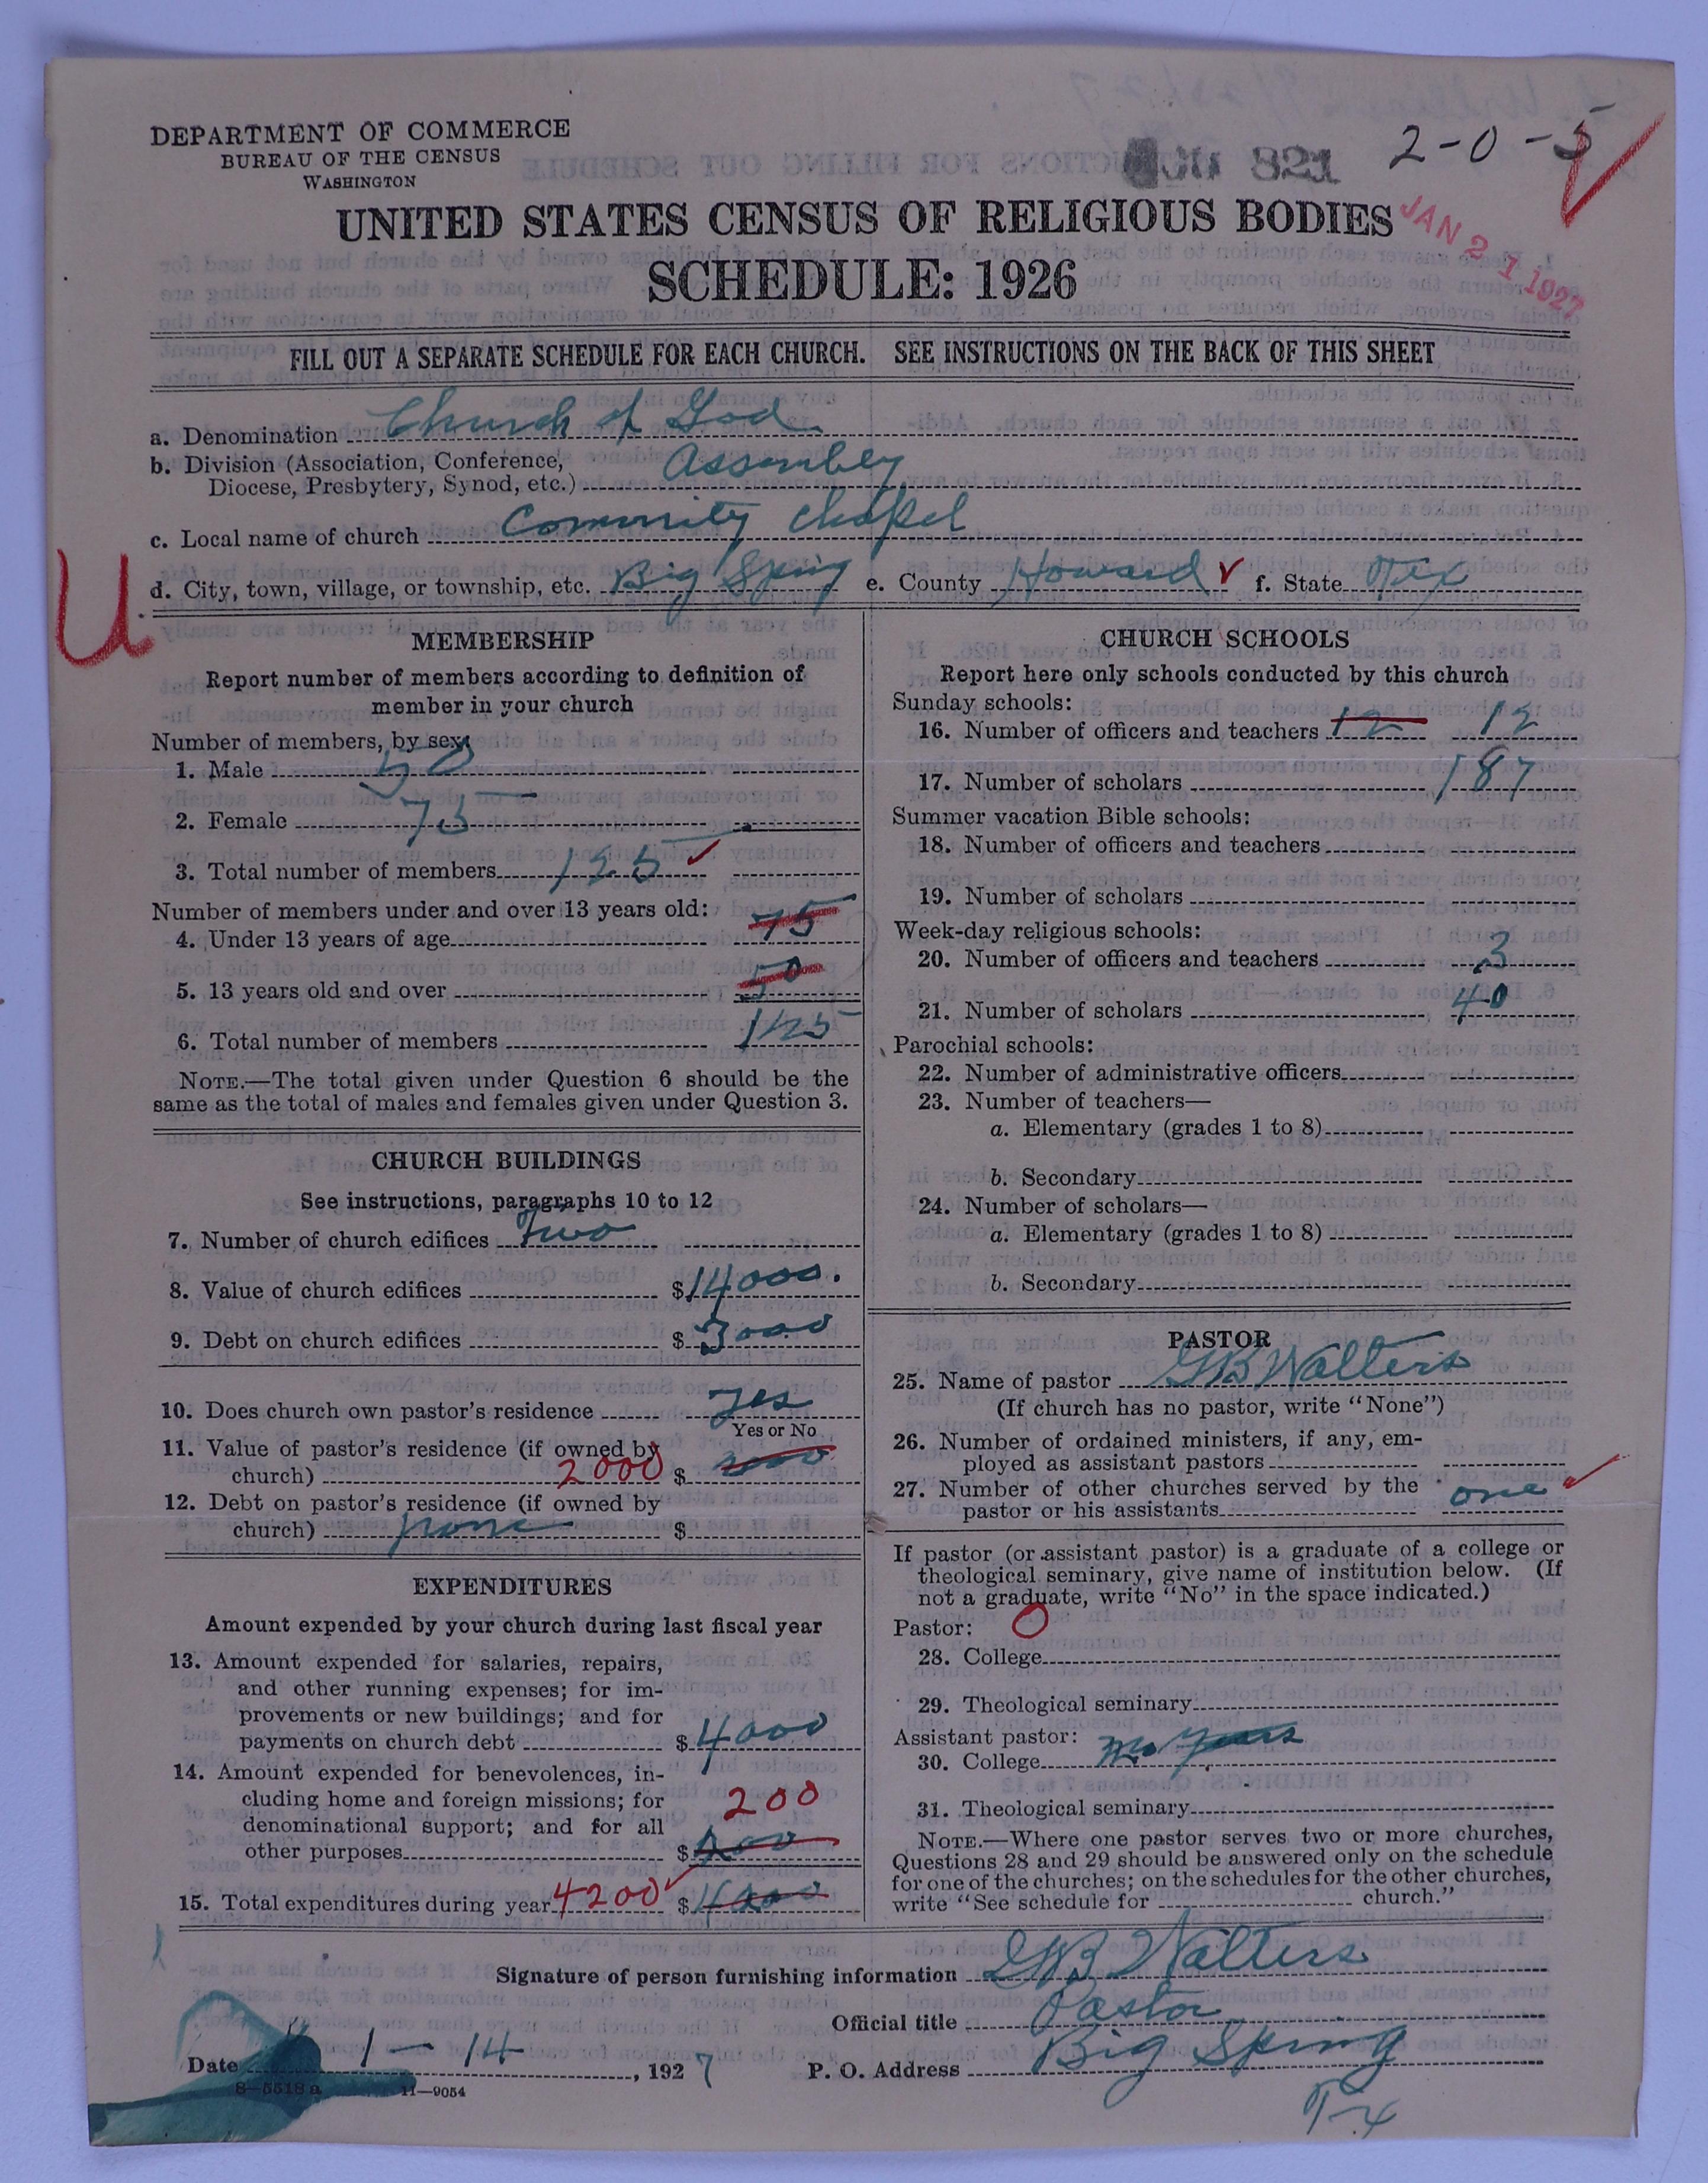 DEPARTMENT OF COMMERCE
BUREAU OF THE CENSUS
WASHINGTON
821
2-0-5
JAN 21 1927
UNITED STATES CENSUS OF RELIGIOUS BODIES
SCHEDULE: 1926
FILL OUT A SEPARATE SCHEDULE FOR EACH CHURCH. SEE INSTRUCTIONS ON THE BACK OF THIS SHEET
a. Denomination Church of God
b. Division (Association, Conference,
Diocese, Presbytery, Synod, etc.) Assembley
c. Local name of church Community Chapel
U
d. City, town, village, or township, etc. Big Spring e. County Howard f. State Tex
MEMBERSHIP
Report number of members according to definition of
member in your church
Number of members, by sex:
1. Male 50
2. Female 75
3. Total number of members 125
Number of members under and over 13 years old:
4. Under 13 years of age 75
5. 13 years old and over 50
6. Total number of members 125
NOTE.—The total given under Question 6 should be the
same as the total of males and females given under Question 3.
CHURCH BUILDINGS
See instructions, paragraphs 10 to 12
7. Number of church edifices Two
8. Value of church edifices $14000.
9. Debt on church edifices $3000
10. Does church own pastor's residence yes
Yes or No
11. Value of pastor's residence (if owned by
church) 2000 $
12. Debt on pastor's residence (if owned by
church) none $
EXPENDITURES
Amount expended by your church during last fiscal year
13. Amount expended for salaries, repairs,
and other running expenses; for im-
provements or new buildings; and for
payments on church debt $4000
14. Amount expended for benevolences, in-
cluding home and foreign missions; for
denominational support; and for all
other purposes 200 $200
15. Total expenditures during year 4200 $
CHURCH SCHOOLS
Report here only schools conducted by this church
Sunday schools:
16. Number of officers and teachers 12 12
17. Number of scholars 187
Summer vacation Bible schools:
18. Number of officers and teachers
19. Number of scholars
Week-day religious schools:
20. Number of officers and teachers 3
21. Number of scholars 40
Parochial schools:
22. Number of administrative officers
23. Number of teachers—
a. Elementary (grades 1 to 8)
b. Secondary
24. Number of scholars—
a. Elementary (grades 1 to 8)
b. Secondary
PASTOR
25. Name of pastor GB Walters
(If church has no pastor, write "None")
26. Number of ordained ministers, if any, em-
ployed as assistant pastors
27. Number of other churches served by the
pastor or his assistants one
If pastor (or assistant pastor) is a graduate of a college or
theological seminary, give name of institution below. (If
not a graduate, write "No" in the space indicated.)
Pastor: O
28. College
29. Theological seminary
Assistant pastor:
30. College
31. Theological seminary
NOTE.—Where one pastor serves two or more churches,
Questions 28 and 29 should be answered only on the schedule
for one of the churches; on the schedules for the other churches,
write "See schedule for church."
Signature of person furnishing information GB Walters
Official title Pastor
Date 1-14, 1927 P. O. Address Big Spring
Tx
8-5518 a 11-9054